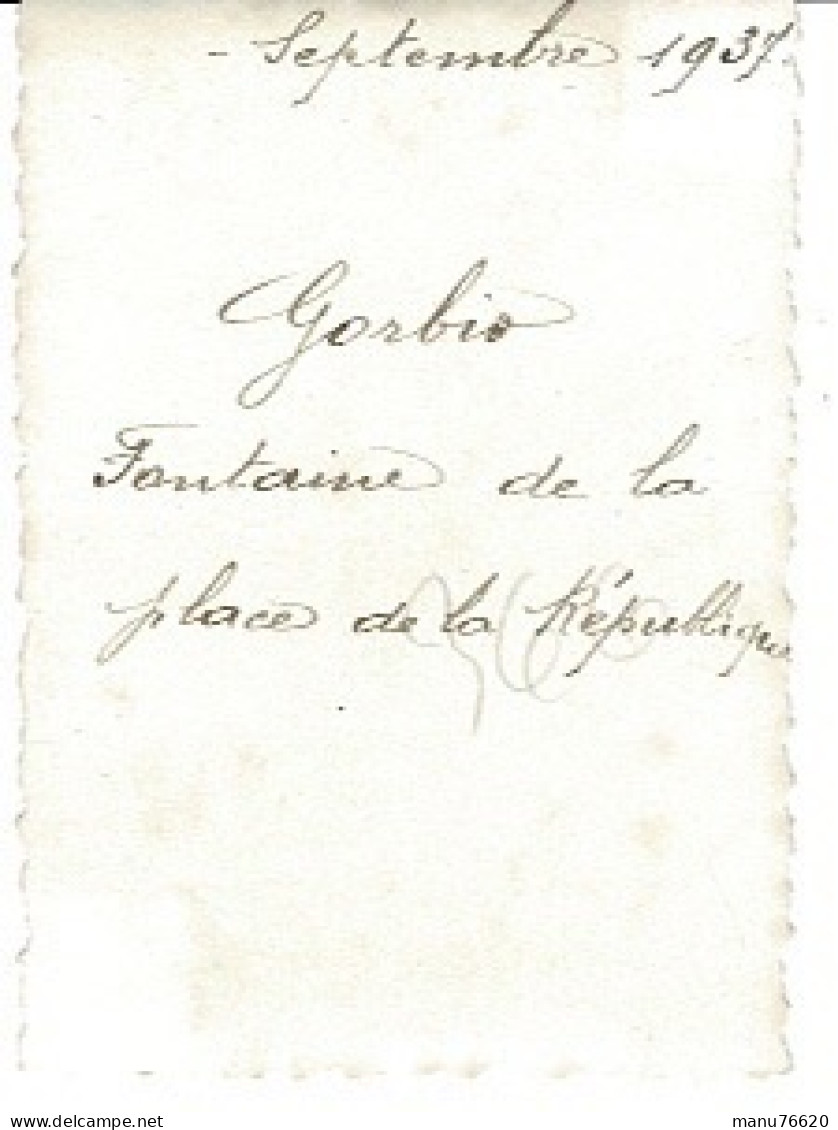 - Septembre 1937.
Gorbio
Fontaine de la
place de la République
delcampe.net
manu76620